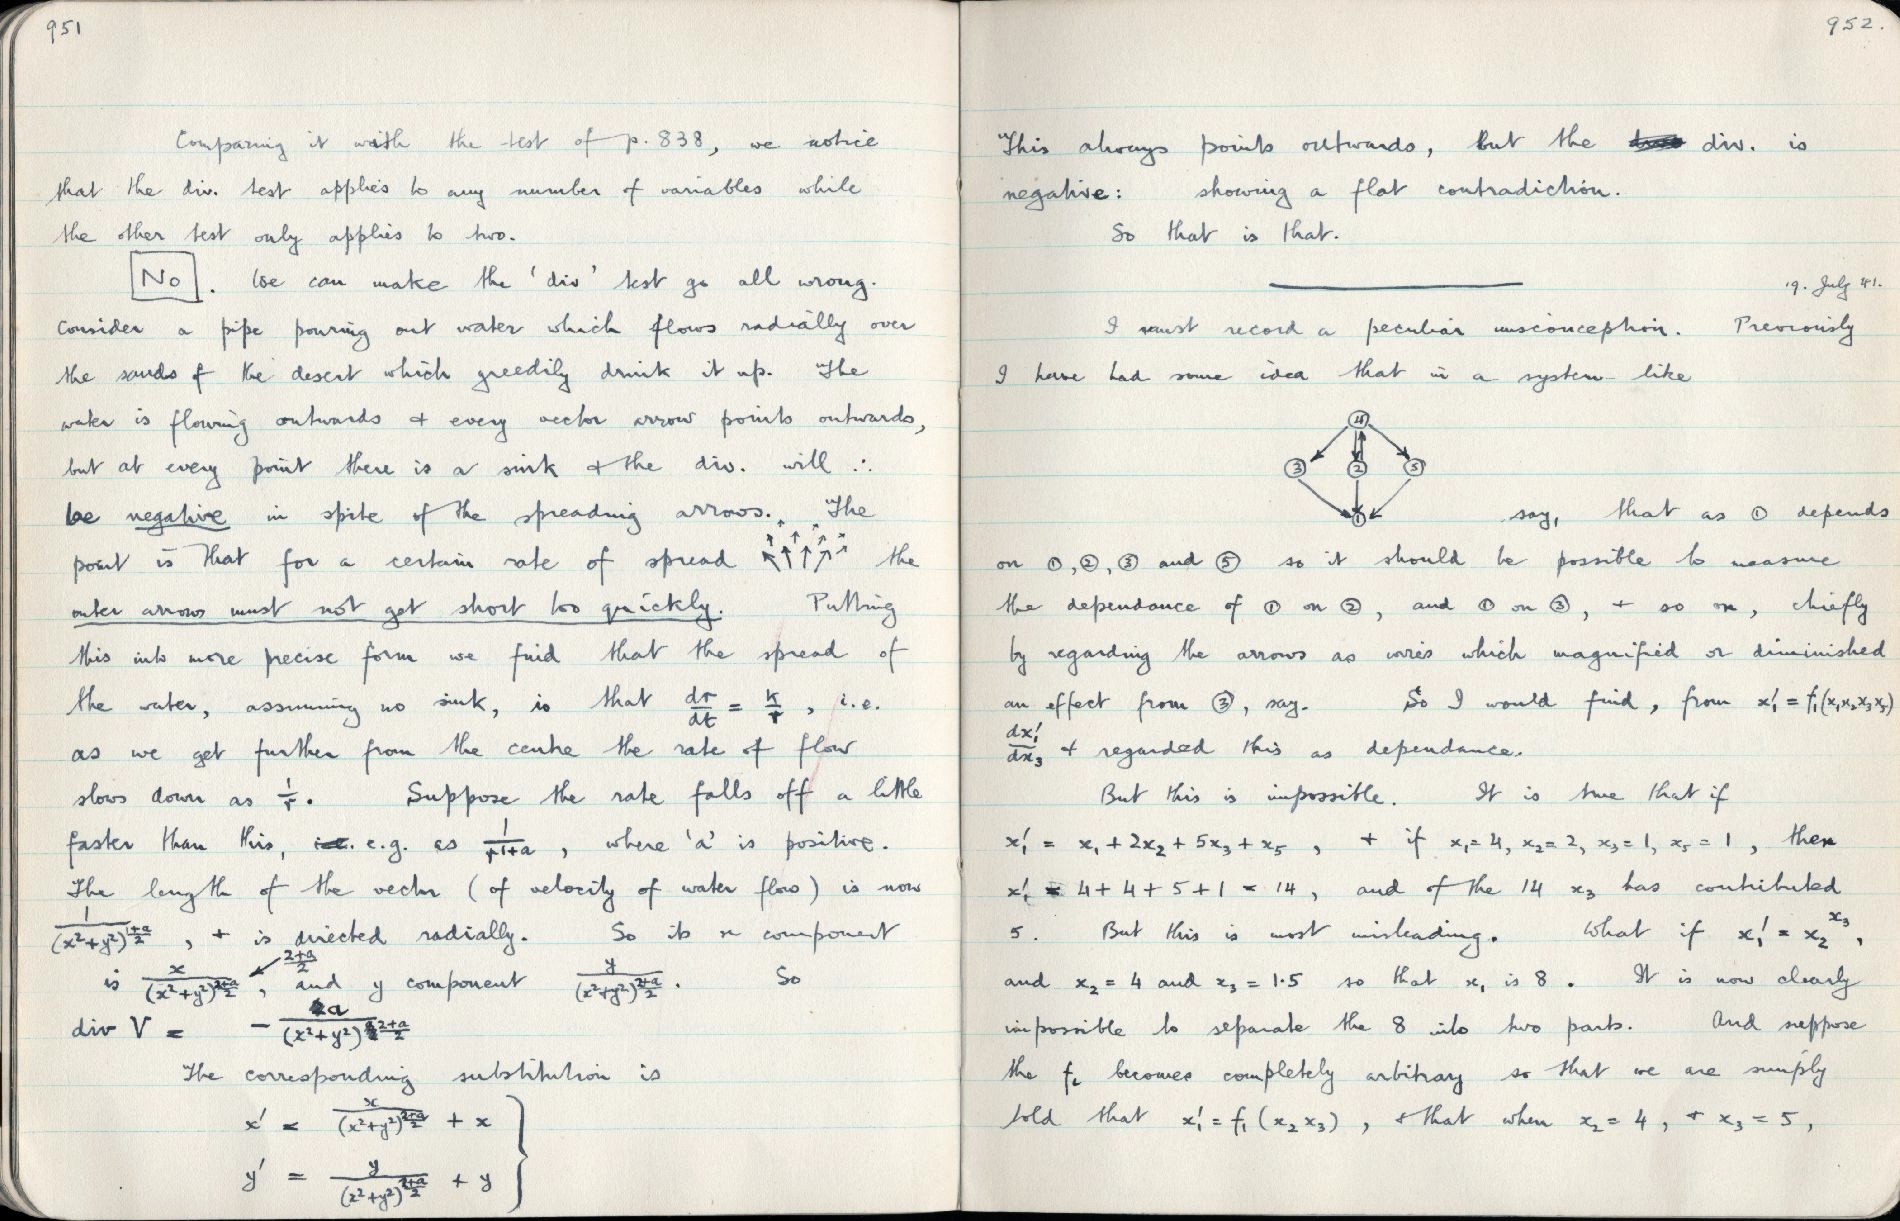 951
Comparing it with the test of p. 838, we notice
that the div. test applies to any number of variables while
the other test only applies to two.
No. We can make the 'div' test go all wrong.
Consider a pipe pouring out water which flows radially over
the sands of the desert which greedily drink it up. The
water is flowing outwards + every vector arrow points outwards,
but at every point there is a sink + the div. will ∴
be negative in spite of the spreading arrows. The
point is that for a certain rate of spread the
outer arrows must not get short too quickly. Putting
this into more precise form we find that the spread of
the water, assuming no sink, is that dr/dt = k/r, i.e.
as we get further from the centre the rate of flow
slows down as 1/r. Suppose the rate falls off a little
faster than this, i.e. e.g. as 1/r^(1+a), where 'a' is positive.
The length of the vector (of velocity of water flow) is now
1/(x²+y²)^((1+a)/2), + is directed radially. So its x component
is x/(x²+y²)^((2+a)/2), (2+a)/2 and y component y/(x²+y²)^((2+a)/2). So
div V = - a/(x²+y²)^((2+a)/2)
The corresponding substitution is
x' = x/(x²+y²)^((2+a)/2) + x
y' = y/(x²+y²)^((2+a)/2) + y }
952.
This always points outwards, but the div. is
negative: showing a flat contradiction.
So that is that.
19. July 41.
I must record a peculiar misconception. Previously
I have had some idea that in a system like
3 2 5
1
say, that as ① depends
on ①, ②, ③ and ⑤ so it should be possible to measure
the dependance of ① on ②, and ① on ③, + so on, chiefly
by regarding the arrows as wires which magnified or diminished
an effect from ③, say. So I would find, from x₁' = f₁(x₁x₂x₃x₅)
dx₁'/dx₃ + regarded this as dependance.
But this is impossible. It is true that if
x₁' = x₁ + 2x₂ + 5x₃ + x₅, + if x₁=4, x₂=2, x₃=1, x₅=1, then
x₁' = 4+4+5+1 = 14, and of the 14 x₃ has contributed
5. But this is most misleading. What if x₁' = x₂^x₃,
and x₂ = 4 and x₃ = 1·5 so that x₁ is 8. It is now clearly
impossible to separate the 8 into two parts. And suppose
the f₁ becomes completely arbitrary so that we are simply
told that x₁' = f₁(x₂x₃), + that when x₂ = 4, + x₃ = 5,